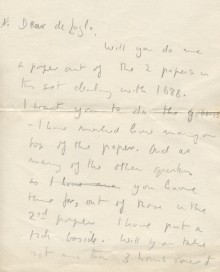 Dear de Zoglo,
Will you do me
a paper out of the 2 papers in
this set dealing with 1688.
I want you to do the
- I have marked
top of the papers. And as
many of the other questions
as you have
time for, out of those in the
2nd paper I have put a
tick beside. Will you take
not 3 hours over it